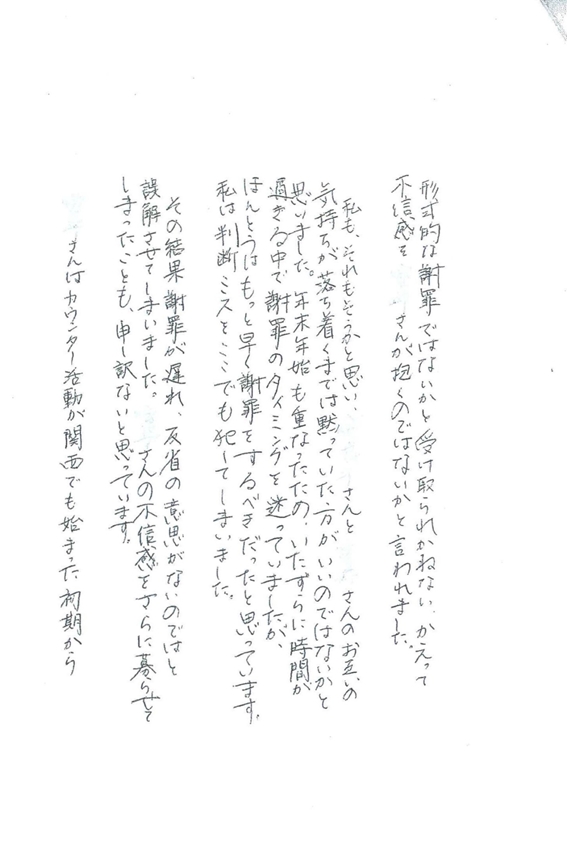 形式的な謝罪ではないかと受け取られかねない、かえって
不信感を さんが抱くのではないかと言われました。
私も、それもそうかと思い、 さんと さんのお互いの
気持ちが落ち着くまでは黙っていた方がいいのではないかと
思いました。年末年始も重なったたの、いたずらに時間が
過ぎる中で謝罪のタイミングを迷っていましたが、
ほんとうはもっと早く謝罪をするべきだったと思っています。
私は判断ミスをここでも犯してしまいました。
その結果謝罪が遅れ、反省の意思がないのではと
誤解させてしまいました。 さんの不信感をさらに募らせて
しまったことも、申し訳ないと思っています。
さんはカウンター活動が関西でも始まった初期から